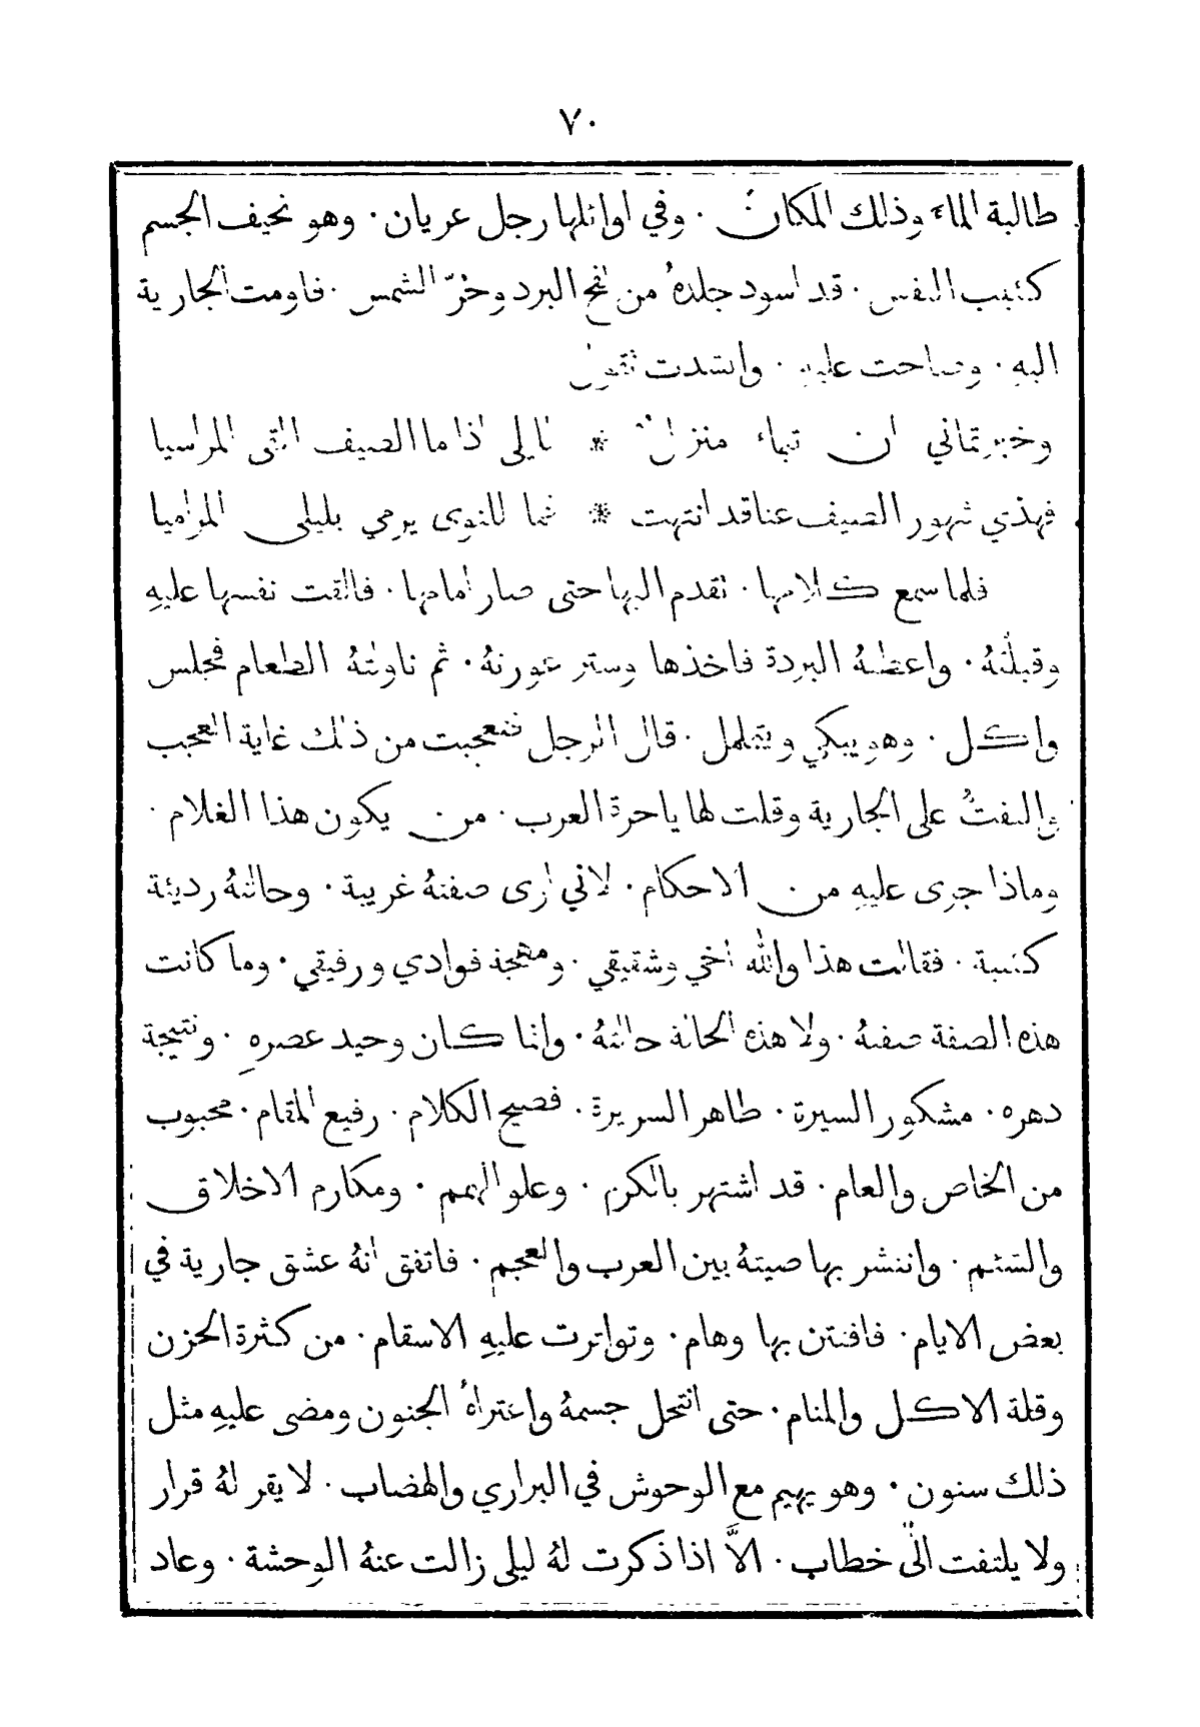 ٧٠
طالبة الماء وذلك المكان · وفي اوائلها رجل عريان · وهو نحيف الجسم
كئيب النفس · قد اسود جلدهُ من لفح البرد وحرّ الشمس · فاومت الجارية
اليهِ · وصاحت عليهِ · وانشدت نقول
وخبرتماني ان تيماء منزلٌ * لليلى اذا ما الصيف القى المراسيا
فهذي شهور الصيف عنا قد انتهت * فما للنوى يرمي بليلى المراميا
فلما سمع كلامها · نقدم اليها حتى صار امامها · فالقت نفسها عليهِ
وقبلتهُ · واعطتهُ البردة فاخذها وستر عورتهُ · ثم ناولتهُ الطعام فجلس
واكل · وهو يبكي ويتململ · قال الرجل فتعجبت من ذلك غاية العجب
والتفتُ على الجارية وقلت لها يا حرة العرب · من يكون هذا الغلام ·
وماذا جرى عليهِ من الاحكام · لاني ارى صفتهُ غريبة · وحالتهُ رديئة
كئيبة · فقالت هذا والله اخي وشقيقي · ومهجة فوادي ورفيقي · وما كانت
هذه الصفة صفتهُ · ولا هذه الحالة حالتهُ · وانما كان وحيد عصرهِ · ونتيجة
دهره · مشكور السيرة · طاهر السريرة · فصيح الكلام · رفيع المقام · محبوب
من الخاص والعام · قد اشتهر بالكرم · وعلو الهمم · ومكارم الاخلاق
والشيم · وانتشر بها صيتهُ بين العرب والعجم · فاتفق انهُ عشق جارية في
بعض الايام · فافتتن بها وهام · وتواترت عليهِ الاسقام · من كثرة الحزن
وقلة الاكل والمنام · حتى انتحل جسمهُ واعتراهُ الجنون ومضى عليهِ مثل
ذلك سنون · وهو يهيم مع الوحوش في البراري والهضاب · لا يقر لهُ قرار
ولا يلتفت الى خطاب · الاَّ اذا ذكرت لهُ ليلى زالت عنهُ الوحشة · وعاد